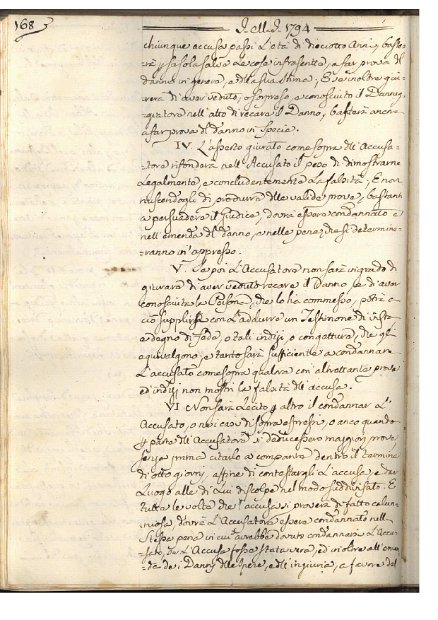 168
I. M. I. 1794
chiunque accusa passi l'età di dieciotto Anni, e baste
rà sia sola salva le cose infrascritte, a far prova del
danno in genere, e di sua stima; E se inoltre giu
rerà d'aver veduto, o sorpreso, e conosciuto il Danneg
giatore nell'atto di recare il Danno, basterà ancor
a far prova di danno in specie.
IV. L'asserto giurato come sopra dell'Accusa-
tore rifonderà nell'Accusato il peso di dimostrarne
legalmente, e concludentemente la falsità; E non
riuscendogli di produrre delle valide prove, bastanti
a persuadere il Giudice, dovrà essere condannato e
nell'emenda del danno, e nelle pene, che si determine-
ranno in appresso.
V. Se poi l'Accusatore non sarà in grado di
giurare di aver veduto recare il Danno, se di aver
conosciuta la Persona, che lo ha commesso, potrà a
ciò supplirsi con l'addurre un Testimone di vista
e degno di fede, o tali indizj, o congetture, che gli
equivalgono; e tanto sarà sufficiente a condannare
l'accusato come sopra qualora con altrettante prove
ed indizj non mostri la falsità dell'accusa.
VI. Non sarà lecito però altro il condannar l'
Accusato, o nei casi di sopra espressi, o anco quando
per parte dell'Accusatore si deducessero maggiori prove,
senza prima citarlo a comparire dentro il termine
di otto giorni, affine di contestargli l'accusa, e dar
luogo alle di Lui discolpe nel modo suddivisato. E
tutte le volte che l'accusa si proverà di fatto calun-
niosa dovrà l'Accusatore essere condannato nell
stesse pene in cui avrebbe dovuto condannarsi l'Accu-
sato, se l'Accusa fosse stata vera, ed inoltre all'emen
da de' Danni, delle spese, e dell'ingiuria, a favore del